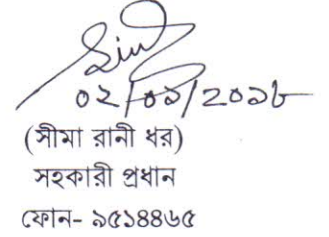 ০২/০১/২০১৮
(সীমা রানী ধর)
সহকারী প্রধান
ফোন- ৯৫১৪৪৬৫